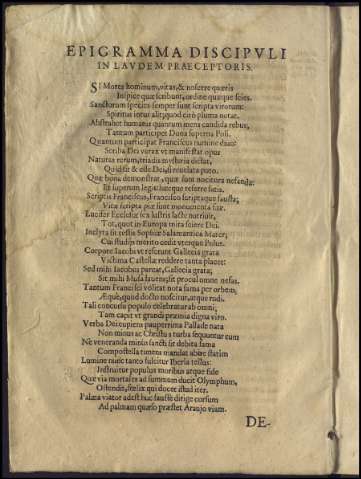 EPIGRAMMA DISCIPVLI
IN LAVDEM PRAECEPTORIS.
SI Mores hominum, vitas, & noscere quæris
Inspice quæ scribunt, ordine quæque scies.
Sanctorum species semper sunt scripta virorum:
Spiritus intus alit, quod ciró pluma notat.
Abstrahit humanis quantum mens candida rebus,
Tantum participet Dona superna Poli.
Quantum participat Franciscus numine diuo:
Scriba Dei verax vt manifestat opus
Naturas rerum, triadis mysteria dictat,
Quid sit & esse Dei, si reuelata puto.
Quæ bona demonstrat, quæ sunt nocitura nefanda:
Et superum leges, iuraque referre satis.
Scriptis Franciscus, Francisco scriptaque fausta;
Vitæ scripta piæ sunt monumenta suæ.
Lucifer Ecclesiæ sea lustris lacte nutriuit,
Tot, quot in Europa mira fuere Dei.
Inclyta sit testis Sophiæ Salmantica Mater;
Cui studijs merito cedit vterque Polus.
Corpore Iacobi vt referunt Gallecia grata
Victima Castellæ reddere tanta placet:
Sed mihi Iacobus pareat, Gallecia grata;
Sit mihi Musa fauens, sit procul omne nefas.
Tantum Francisci volitat nota fama per orbem,
Æque, quid docto noscitur, atque rudi.
Tali concursu populo celebratur ab omni,
Tam capit et grandi præmia digna viro.
Verba Dei cupiens pauperrima Pallade nata
Non minus ac Christus turba sequuntur eum
Ne veneranda minùs sancti sit debita fama
Compostella tuntea mandat abire statim
Lumine nunc tanto fulcitur Iberia tellus:
Instruitur populus moribus atque fide
Quæ via mortales ad summum ducit Olymphum,
Ostendit, fœlix qui docet istud iter.
Palæta viator adest huc faustè dirige corsum
Ad palmam quæso præstet Araujo viam.
DE-